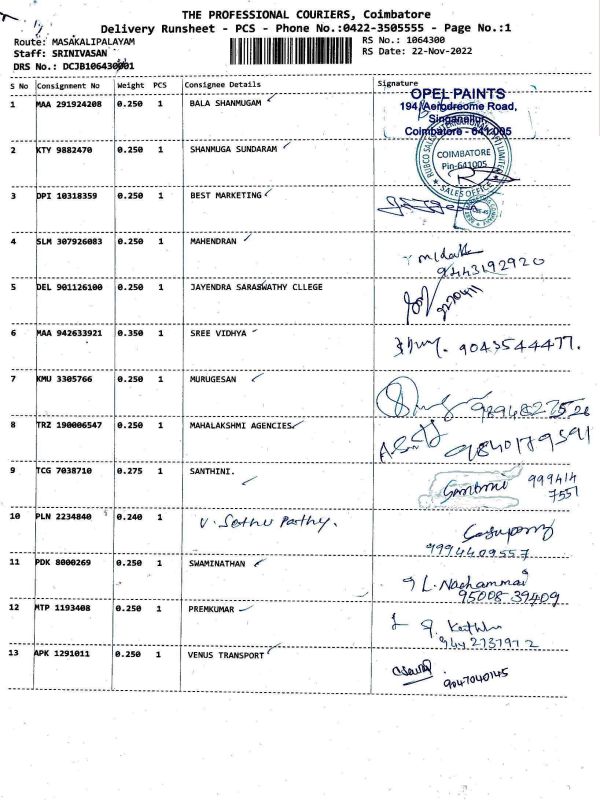 THE PROFESSIONAL COURIERS, Coimbatore
Delivery Runsheet - PCS - Phone No.:0422-3505555 - Page No.:1
Route: MASAKALIPALAYAM RS No.: 1064300
Staff: SRINIVASAN RS Date: 22-Nov-2022
DRS No.: DCJB106430001
S No Consignment No Weight PCS Consignee Details Signature
1 MAA 291924208 0.250 1 BALA SHANMUGAM
OPEL PAINTS
194, Aerodreome Road,
Singanallur,
Coimbatore - 641 005
2 KTY 9882470 0.250 1 SHANMUGA SUNDARAM
COIMBATORE
Pin-641005
SALES OFFICE
3 DPI 10318359 0.250 1 BEST MARKETING
4 SLM 307926083 0.250 1 MAHENDRAN
9443192920
5 DEL 901126100 0.250 1 JAYENDRA SARASWATHY CLLEGE
6 MAA 942633921 0.350 1 SREE VIDHYA
9043544477.
7 KMU 3305766 0.250 1 MURUGESAN
8 TRZ 190006547 0.250 1 MAHALAKSHMI AGENCIES
9840179591
9 TCG 7038710 0.275 1 SANTHINI.
999414
7551
10 PLN 2234840 0.240 1 V. Sethu Pathy.
9994409557
11 PDK 8000269 0.250 1 SWAMINATHAN
L. Nachammai
95008-39409
12 MTP 1193408 0.250 1 PREMKUMAR
13 APK 1291011 0.250 1 VENUS TRANSPORT
9047040145